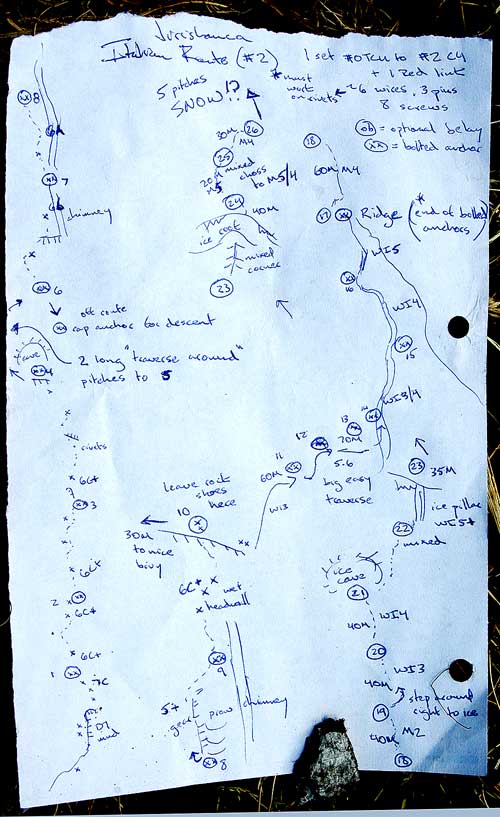 Jirishanca
Italian Route (#2)
1 set #0TCU to #2 C4
+ 1 Red link
26 wires, 3 pins
8 screws
*must
work
on rivets
5 pitches
SNOW!?
ob = optional belay
xx = bolted anchor
xx 8
6A
xx 7
6b
chimney
xx 6
off route
xx rap anchor for descent
2 long "traverse around"
pitches to 5
cave
xx 4
rivets
6C+
xx 3
6C+
2 xx 6C+
6C+
1 xx
7C
mud
30M
26
M4
25
20M
M5
mixed
choss
to M5/4
24
40M
ice roof
mixed
corner
23
18
60M M4
17 xx Ridge (*end of bolted
anchors)
WI5
xx
16
WI4
xx
15
WI3/4
14
xx
13
xx
70M
12
xx
5.6
big easy
traverse
11
xx
60M
WI3
leave rock
shoes
here
10
30M
to nice
bivy
6C+
wet
headwall
xx
9
5+
gear
prow
chimney
xx 8
23
35M
ice pillar
WI5+
22
mixed
ice
cave
21
40M
WI4
20
WI3
40M
step around
right to ice
19
40M
M2
18